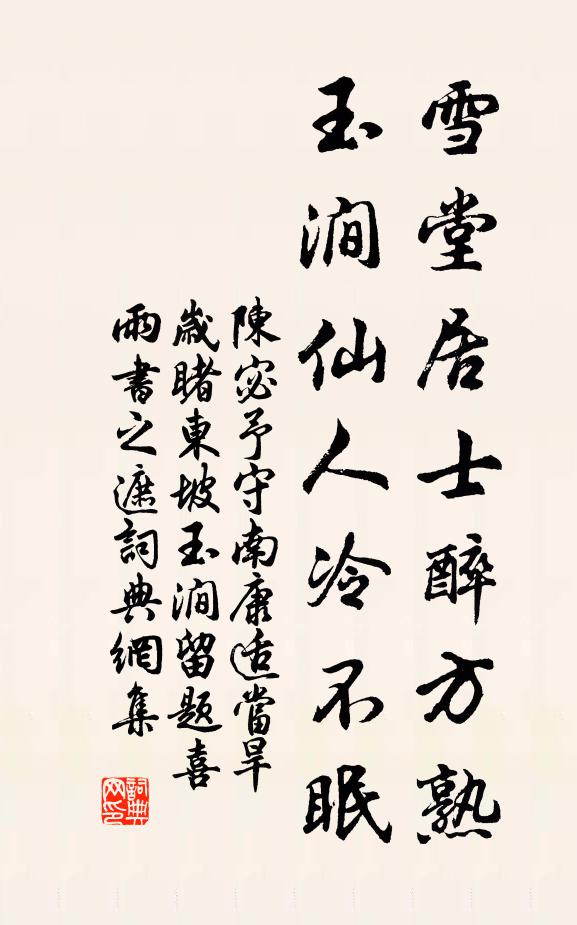 雪堂居士醉方熟
玉澗仙人冷不眠
陳宓予守南康适當旱
歲睹東坡玉澗留題喜
雨書之遮詞典網集
詞典
网印